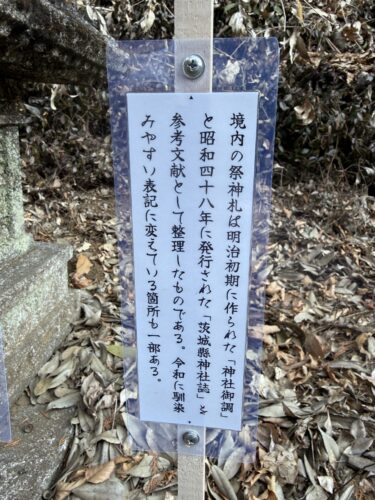 境内の祭神札は明治初期に作られた「神社御調」
と昭和四十八年に発行された「茨城縣神社誌」を
参考文献として整理したものである。令和に馴染
みやすい表記に変えている箇所も一部ある。